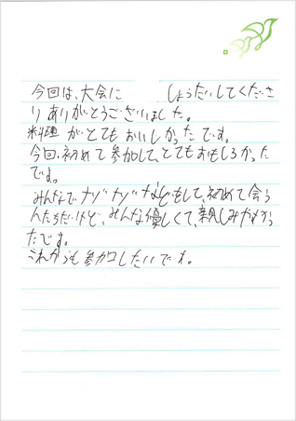 今回は、大会に しょうたいしてくださ
りありがとうございました。
料理がとてもおいしかったです。
今回、初めて参加して、とてもおもしろかった
です。
みんなでナゾナゾなどもして、初めて会う
人たちだけど、みんな優しくて、親しみやすかっ
たです。
これからも参加したいです。